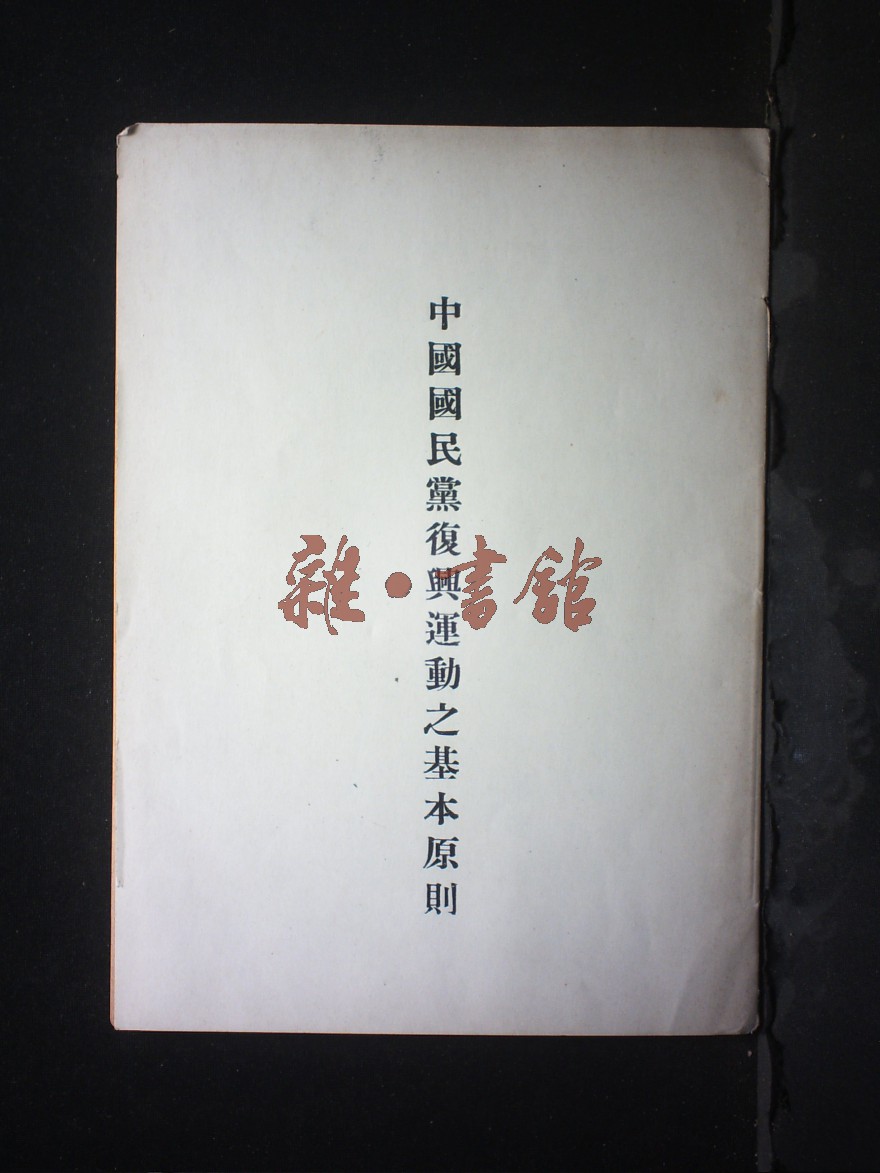 中國國民黨復興運動之基本原則
雜·書館